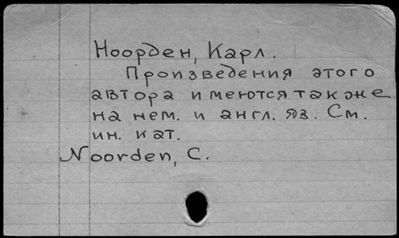 Ноорден, Карл.
Произведения этого
автора имеются также
на нем. и англ. яз. См.
ин. кат.
Noorden, C.